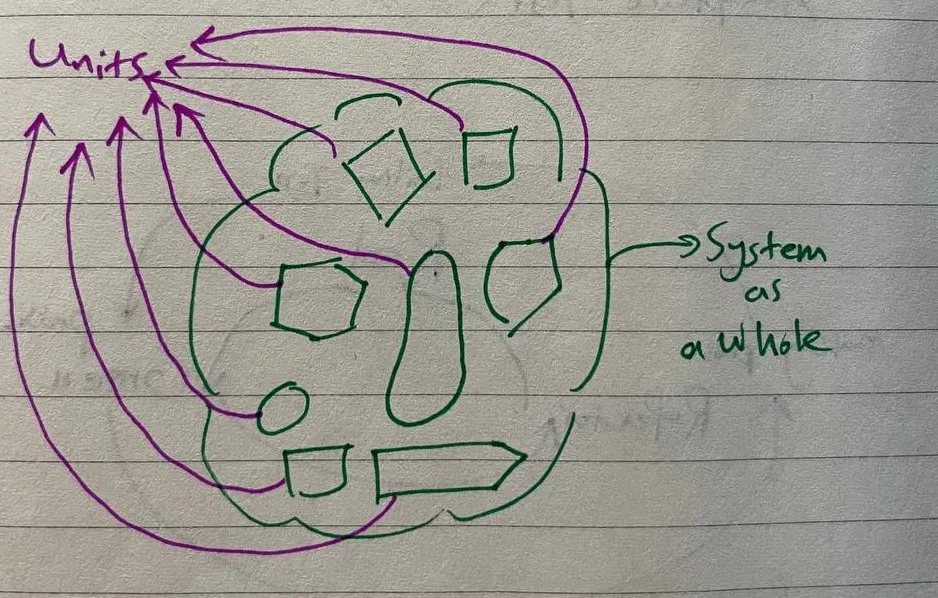 Units
System
as
a whole